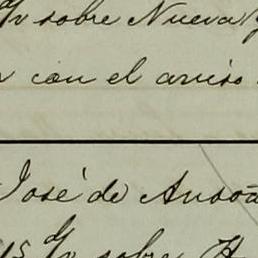 d/v sobre Nueva Y
con el aviso
José de Ansoa
15 d/v sobre H